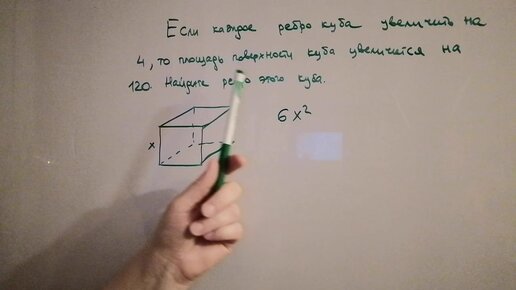 Если каждое ребро куба увеличить на
4, то площадь поверхности куба увеличится на
120. Найдите ребро этого куба.
x
6x²